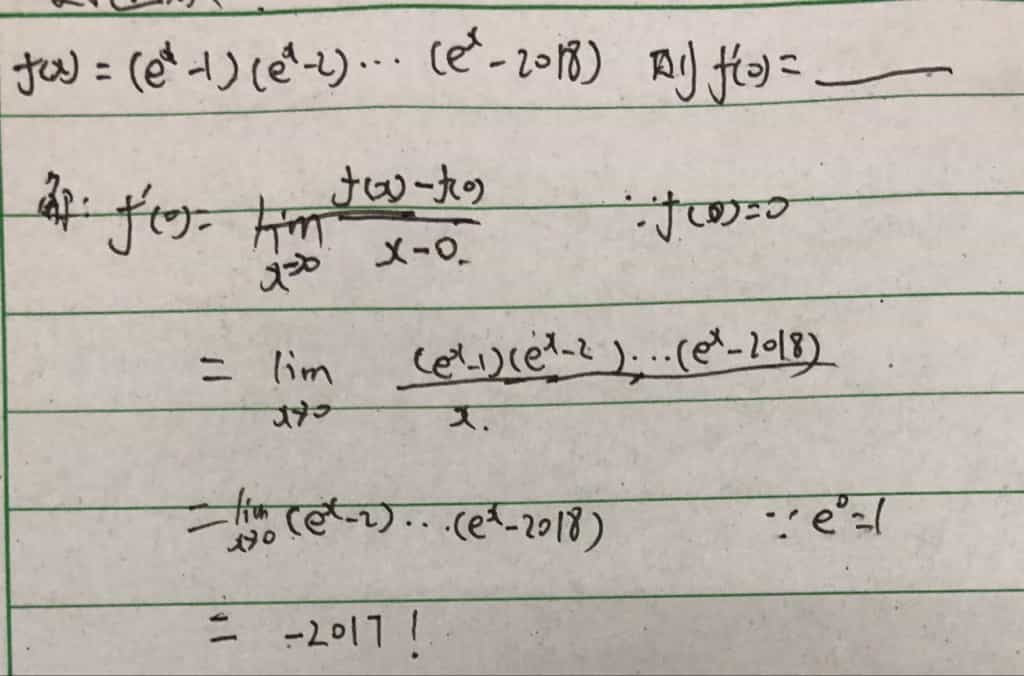 f(x) = (eˣ-1)(eˣ-2)⋯(eˣ-2018) 则 f'(0) = ____
解: f'(0) = lim x→0 f(x)-f(0) / x-0. ∵f(0)=0
= lim x→0 (eˣ-1)(eˣ-2)⋯(eˣ-2018) / x.
= lim x→0 (eˣ-2)⋯(eˣ-2018) ∵ e⁰=1
= -2017!